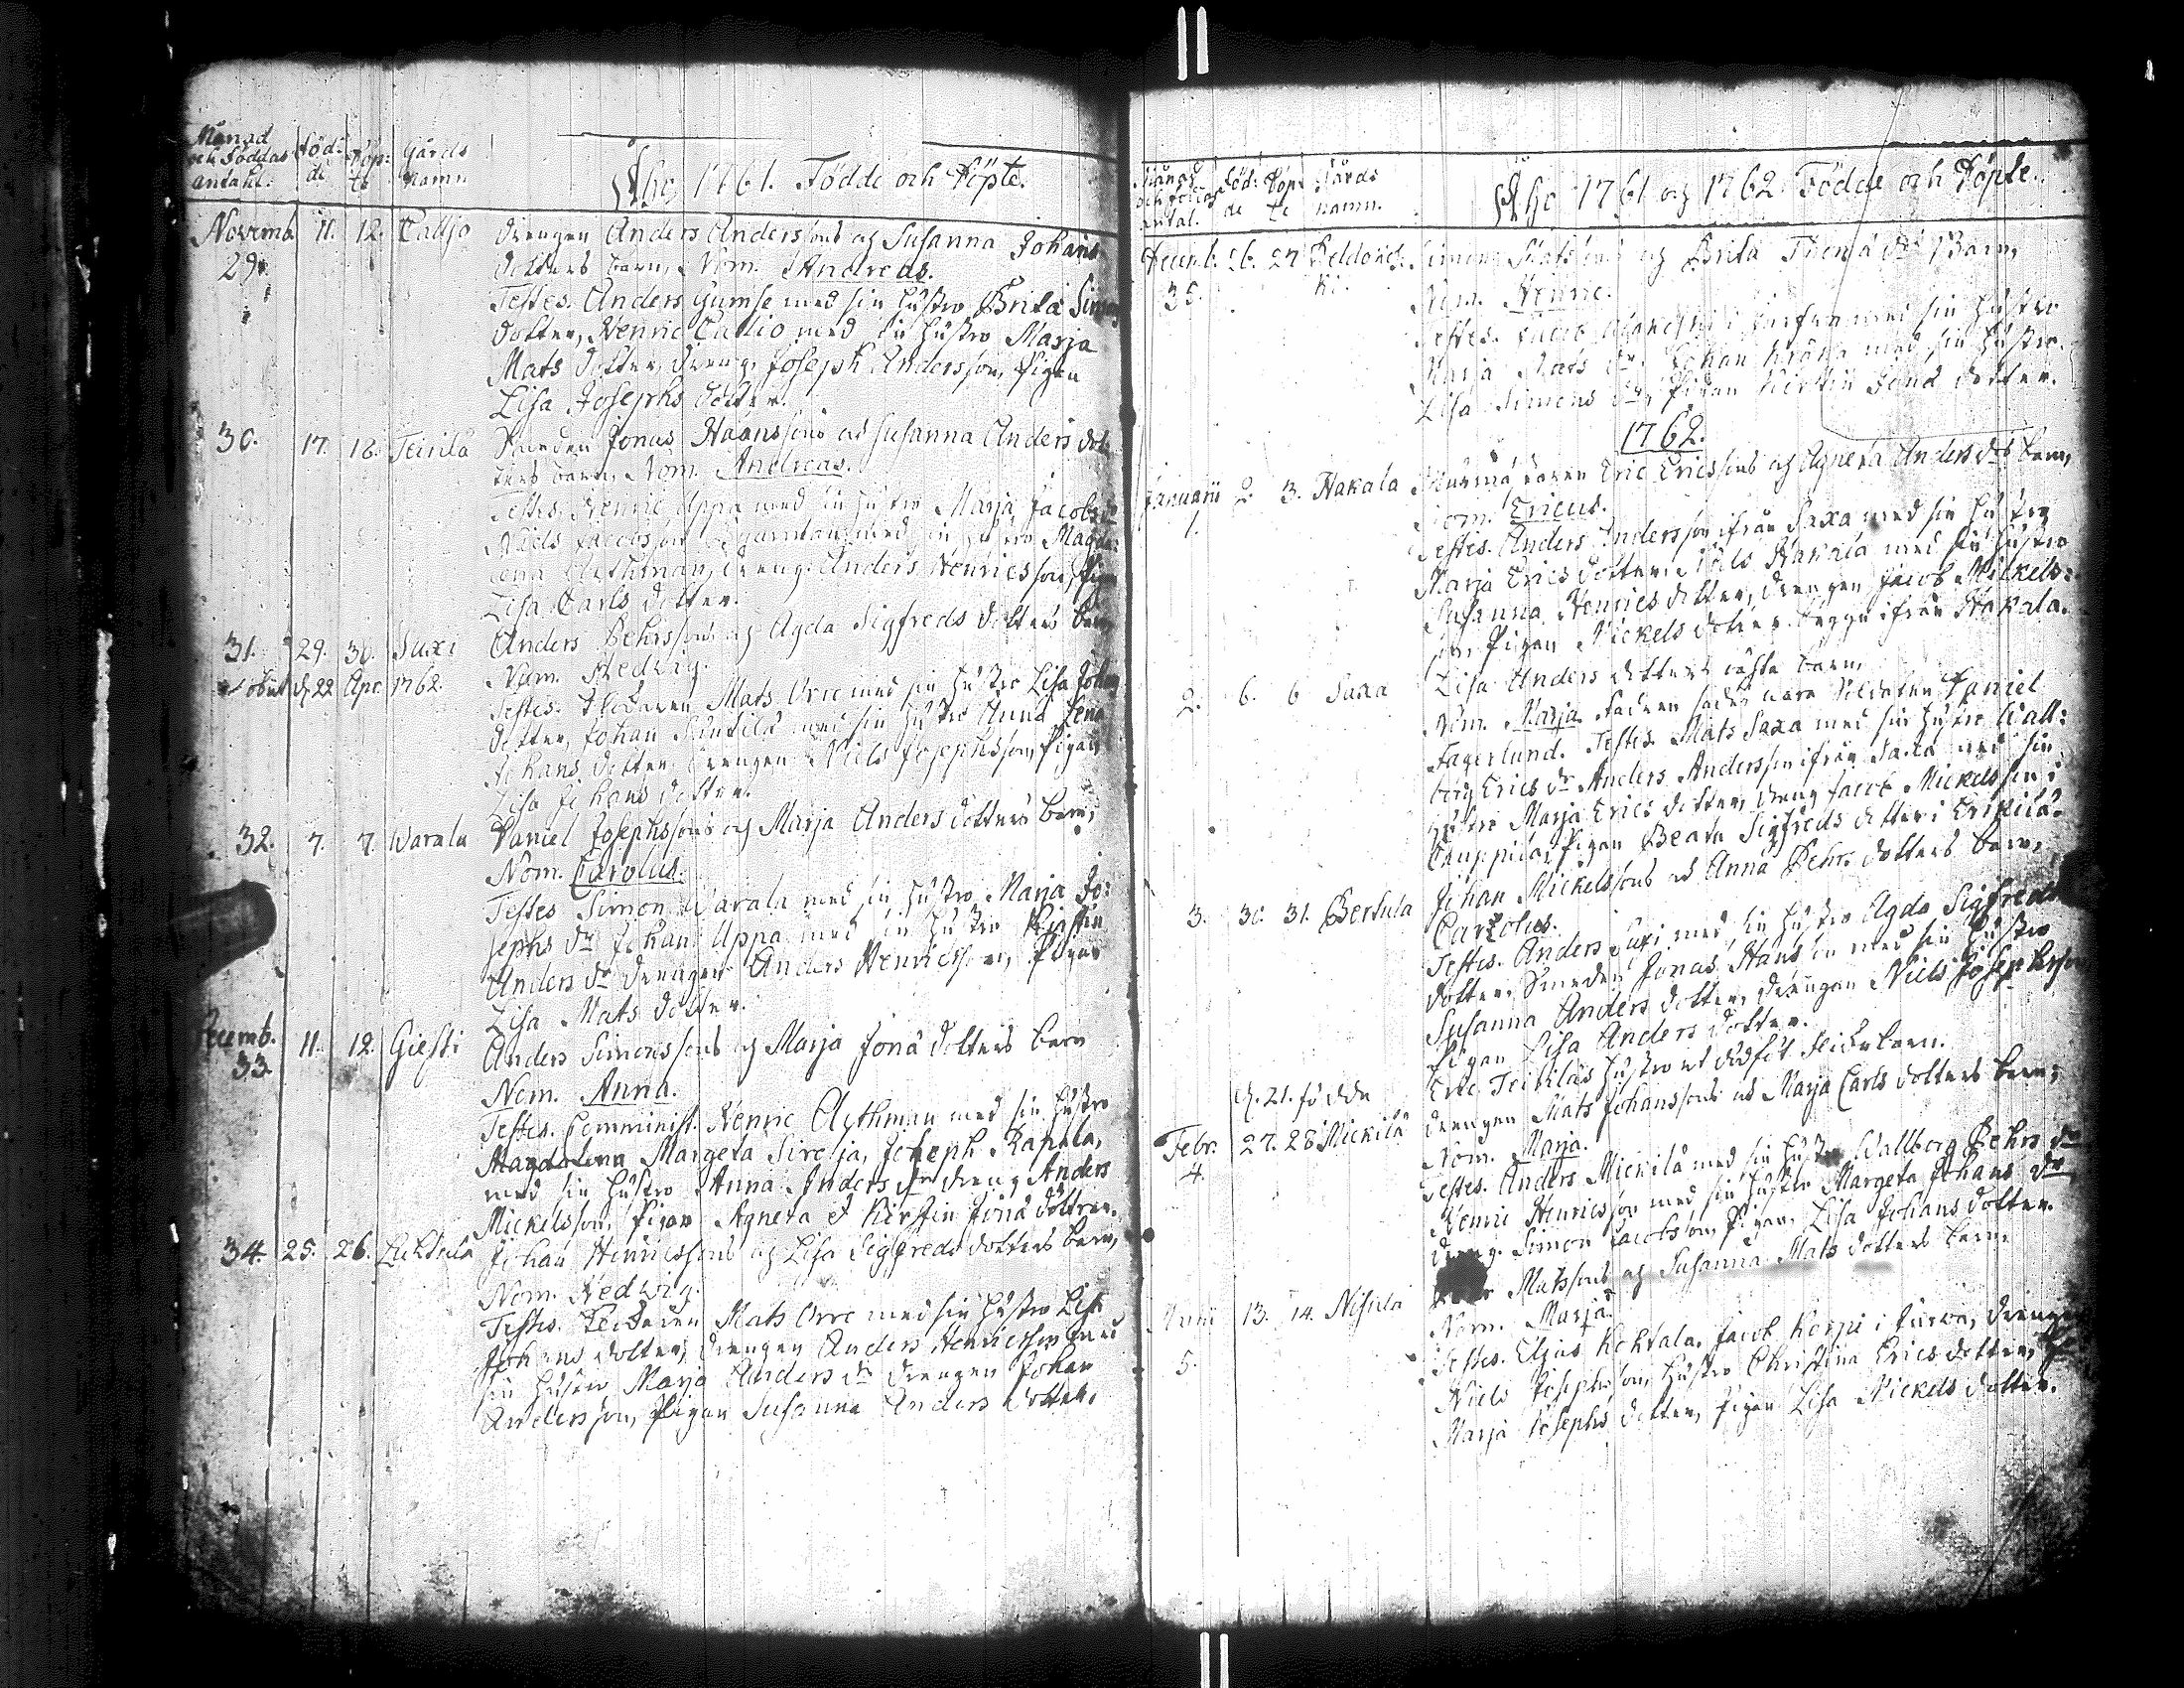 Månad och Föddas antahl. Föd: de Döp: te Gårds namn
Åhr 1761. Födde och Döpte.
Novemb. 11. 12. Callio Drengen Anders Anderssons og Susanna Johans
29. dotters barn, Nom. Andreas.
Testes. Anders Gumse med sin hustro Brita Simons
dotter, Henric Callio med sin hustro Marja
Mats dotter, dreng. Joseph Andersson, Pigan
Lisa Josephs dotter.
30. 17. 18. Teirila Smeden Jonas Haanssons ad Susanna Anders dot:
ters barn, Nom. Andreas.
Testes. Henric Uppa med sin hustro Marja Jacobs dr
Niels Jacobsson med sin hustro Magda:
lena Elethman, dreng. Anders Henricsson, Pigan
Lisa Carls dotter.
31. 29. 30. Suxi Anders Pehrssons og Agda Sigfreds dotters barn
obiit d. 22 Apr. 1762. Nom. Hedwig.
Testes. Mats Orre med sin hustro Lisa Johans
dotter, Johan med sin hustro Anna Lena
Johans dotter, drengen Niels Josephsson, Pigan
Lisa Johans dotter.
32. 7. 7. Warala Daniel Josephssons og Marja Anders dotters barn,
Nom. Carolus.
Testes Simon Warala med sin hustro Marja Jo:
sephs dr Johan Uppa med sin hustro Kirstin
Anders dr drengen Anders Henricsson, Pigan
Lisa Mats dotter.
Decemb. 11. 12. Giesti Anders Simonssons og Marja Jona dotters barn
33. Nom. Anna.
Testes. Comminist. Henric Aethman med sin hustro
Magdalena Margeta Sirelia, Joseph Rapala,
med sin hustro Anna Anders dr dreng Anders
Mickelsson, Pigan Agneta et Kirstin Jona döttrar.
34. 25. 26. Luhtala Johan Henricssons og Lisa Sigfreds dotters barn,
Nom. Hedwig.
Testes. Mats Orre med sin hustro Lisa
Johans dotter, drengen Anders Henricsson med
sin hustro Marja Anders dr drengen Johan
Andersson, Pigan Susanna Anders dotter.
Månad och Föddas antal. Föd: de Döp: te Gårds namn.
Åhr 1761 og 1762 Födde och Döpte.
Decemb. 26. 27 Simon Matssons og Brita Thomä drs Barn,
35. Nom. Henric.
Testes. med sin hustro
Marja Mats dr. Johan med sin hustro
Lisa Simons dr, Pigan Kirstin Jona dotter.
1762.
Januarii 2. 3. Hakala Eric Ericssons og Agneta Anders drs barn,
1. Nom. Ericus.
Testes. Anders Andersson ifrån Saxa med sin hustro
Marja Erics dotter, Niels Hakala med sin hustro
Susanna Henrics dotter, drengen Jacob Mickels:
son, Pigan Mickels dotter begge ifrån Hakala.
2. 6. 6 Saxa Lisa Anders dotters oächta barn,
Nom. Marja. Fadren sades vara Soldaten Daniel
Fagerlund. Testes. Mats Saxa med sin hustro Wall:
borg Erics dr Anders Andersson ifrån Saxa med sin
hustro Marja Erics dotter, dreng Jacob Mickelsson i
Pigan Beata Sigfreds dotter i Erikilä.
3. 30. 31. Bertula Johan Mickelssons ad Anna Pehrs dotters barn,
Carolus.
Testes. Anders Suxi med sin hustro Agda Sigfreds
dotter, Smeden Jonas Hansson med sin hustro
Susanna Anders dotter, drengen Niels Josephsson
Pigan Lisa Anders dotter.
d. 21. födde Eric Teirilas hustro et dödfödt barn.
Febr. 27. 28 Mickila drengen Mats Johanssons ad Marja Carls dotters barn;
4. Nom. Marja.
Testes. Anders Mickilä med sin hustro Wallborg Pehrs dr
Henric Henricsson med sin hustro Margeta Johans dr
dreng. Simon Jacobsson, Pigan Lisa Johans dotter.
13. 14. Nisula Matssons og Susanna Mats dotters barn.
5. Nom. Marja.
Testes. Elias Kohtala, Jacob Korpi i Turwa, drengen
Niels Josephsson, hustro Christina Erics dotter,
Marja Josephs dotter, Pigan Lisa Mickels dotter.